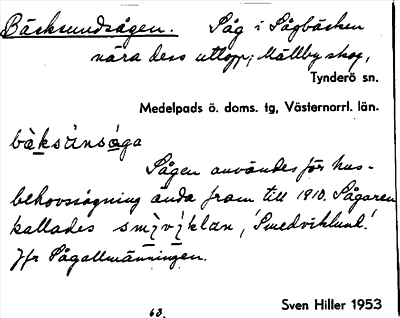 Bäcksundsågen. Såg i Sågbäcken
nära dess utlopp; Mällby skog,
Tynderö sn.
Medelpads ö. doms. tg, Västernorrl. län.
bàksúnsága
Sågen användes för hus-
behovssågning ända fram till 1910. Sågaren
kallades smi̱vi̱klan, 'Smedviklund'.
Jfr Sågallmänningen.
63.
Sven Hiller 1953